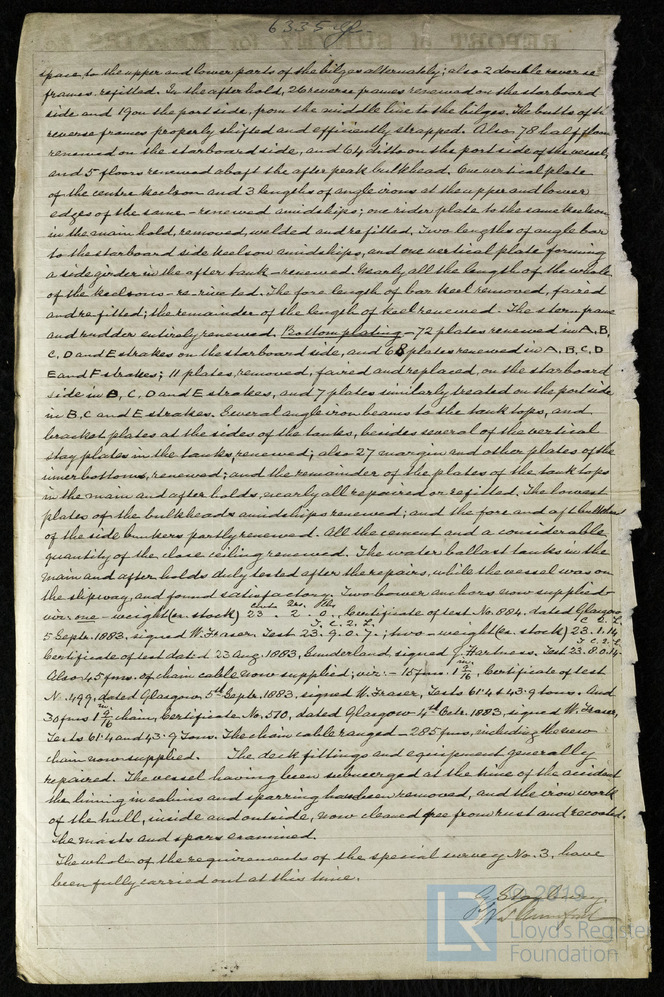 6335 Gls
REPORT of SURVEY for REPAIRS, &c.
space to the upper and lower parts of the bilges alternately; also 2 double reverse
frames refitted. In the after hold, 26 reverse frames renewed on the starboard
side and 19 on the port side, from the middle line to the bilges. The butts of the
reverse frames properly shifted and efficiently strapped. Also, 78 half floors
renewed on the starboard side, and 64 ditto on the port side of the vessel,
and 5 floors renewed abaft the after peak bulkhead. One vertical plate
of the centre keelson and 3 lengths of angle irons at the upper and lower
edges of the same – renewed amidships; one rider plate to the same keelson
in the main hold, removed, welded and refitted. Two lengths of angle bar
to the starboard side keelson amidships, and one vertical plate forming
a side girder in the after tank – renewed. Nearly all the length of the whole
of the keelsons – re-riveted. The fore length of bar keel removed, faired
and refitted; the remainder of the length of keel renewed. The stern frame
and rudder entirely renewed. Bottom plating – 72 plates renewed in A, B,
C, D and E strakes on the starboard side, and 68 plates renewed in A, B, C, D
E and F strakes; 11 plates, removed, faired and replaced, on the starboard
side in B, C, D and E strakes, and 7 plates similarly treated on the port side
in B, C and E strakes. Several angle iron beams to the tank tops, and
bracket plates at the sides of the tanks, besides several of the vertical
stay plates in the tanks, renewed; also 27 margin and other plates of the
inner bottoms, renewed; and the remainder of the plates of the tank tops
in the main and after holds, nearly all repaired or refitted. The lowest
plates of the bulkheads amidships renewed; and the fore and aft bulkheads
of the side bunkers partly renewed. All the cement and a considerable
quantity of the close ceiling renewed. The water ballast tanks in the
main and after holds duly tested after the repairs, while the vessel was on
the slipway, and found satisfactory. Two bower anchors now supplied –
viz: one – weight (ex. stock) 23 cwts . 2 qrs . 0 lbs. Certificate of test No. 884, dated Glasgow
5 Septr. 1883, signed W. Fraser. Test T. C. Q. L. 23. 9. 0. 7.; two – weight (ex. stock) C. Q. L. 23. 1. 14
Certificate of test dated 23 Aug. 1883, Sunderland, signed J. Hartness. Test T. C. Q. L. 23. 8. 0. 14
Also 45 fms. of chain cable now supplied; viz: – 15 fms. 1 9/16 in., Certificate of test
No. 499, dated Glasgow, 5th Septr. 1883, signed W. Fraser, Tests 61·4 & 43·9 tons. And
30 fms 1 9/16 in. chain, Certificate No. 570, dated Glasgow 4th Octr. 1883, signed W. Fraser,
Tests 61·4 and 43·9 Tons. The chain cable ranged – 285 fms, including the new
chain now supplied. The deck fittings and equipment generally
repaired. The vessel having been submerged at the time of the accident
the lining in cabins and sparring has been removed, and the iron work
of the hull, inside and outside, now cleaned free from rust and recoated.
The masts and spars examined.
The whole of the requirements of the special survey No. 3, have
been fully carried out at this time.
© 2019
Lloyd's Register
Foundation
LR